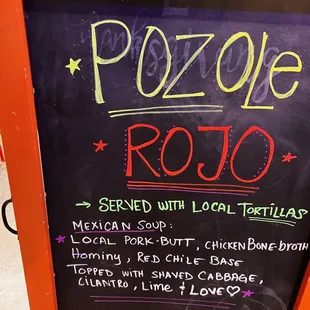 POZOLE
ROJO
→ SERVED WITH LOCAL TORTILLAS
MEXICAN SOUP:
LOCAL PORK-BUTT, CHICKEN BONE-BROTH
HOMINY, RED CHILE BASE
TOPPED WITH SHAVED CABBAGE,
CILANTRO, LIME & LOVE♡